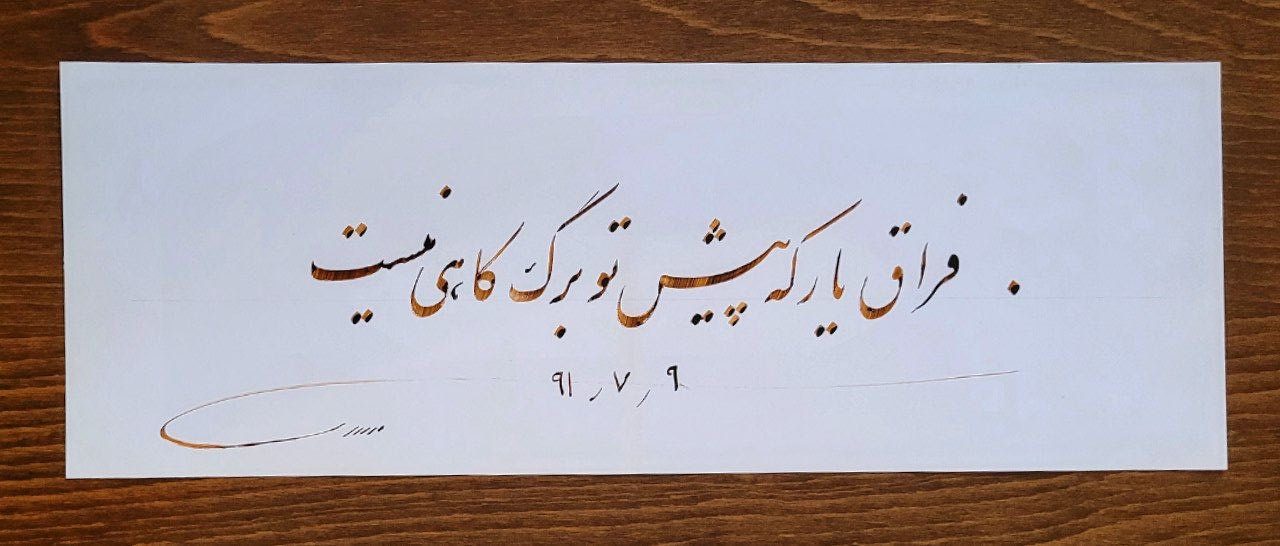 فراق یار که پیش تو برگ کاهی نیست
۹ر۷ر۹۱